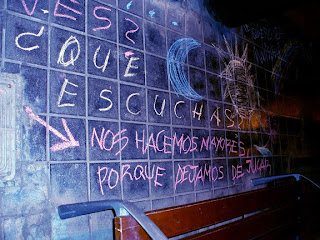 VES?
¿QUÉ
ESCUCHAS
NOS HACEMOS MAYORES
PORQUE DEJAMOS DE JUGAR